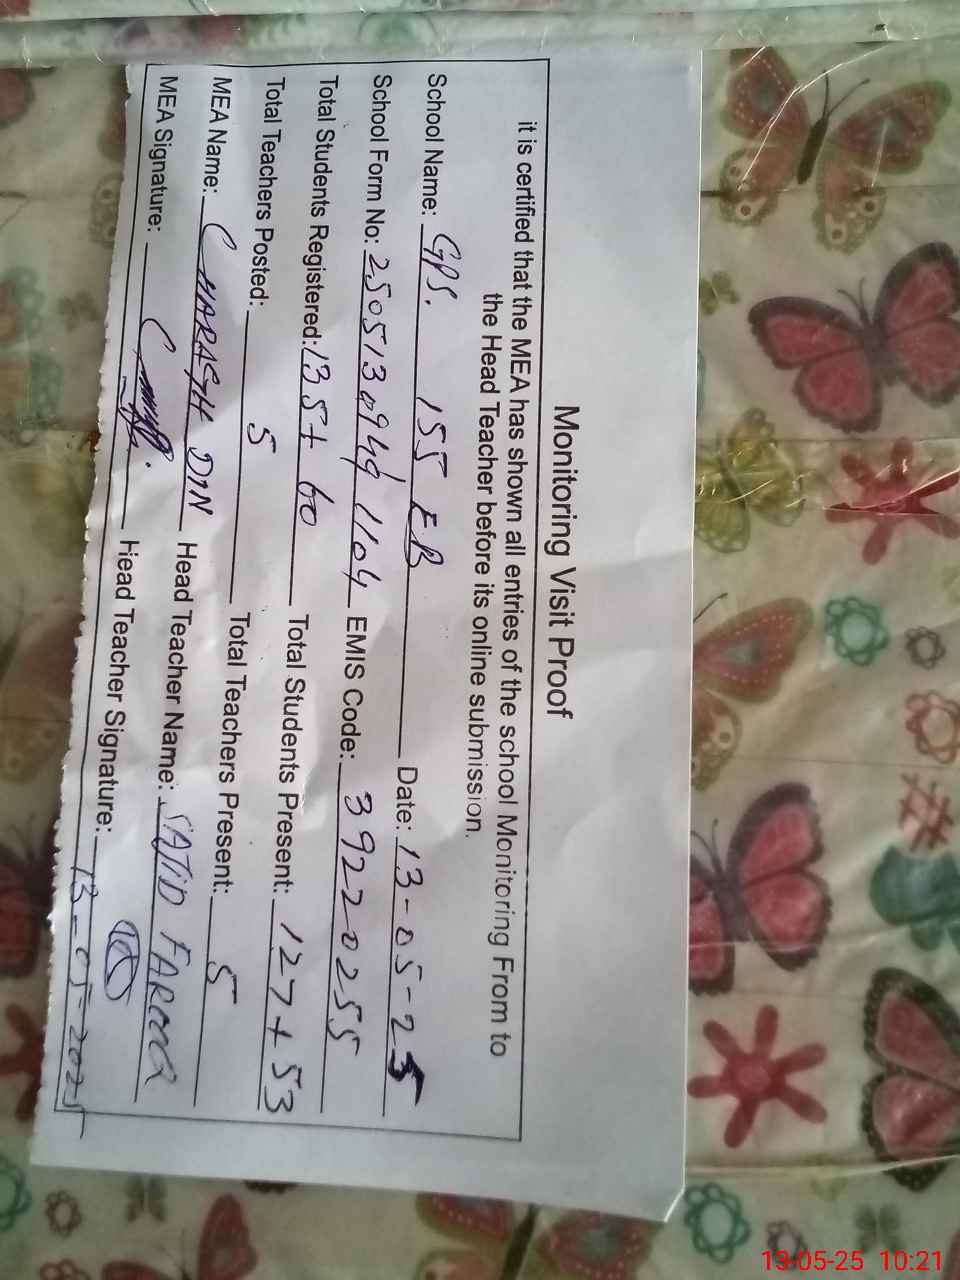 Monitoring Visit Proof
it is certified that the MEA has shown all entries of the school Monitoring From to
the Head Teacher before its online submission.
School Name: GPS. 155 EB Date: 13-05-25
School Form No: 25051309491104 EMIS Code: 39220255
Total Students Registered: 135+60 Total Students Present: 127+53
Total Teachers Posted: 5 Total Teachers Present: 5
MEA Name: CHARAGH DIN Head Teacher Name: SAJID FAROOQ
MEA Signature: Head Teacher Signature:
13-05-2025
13-05-25 10:21